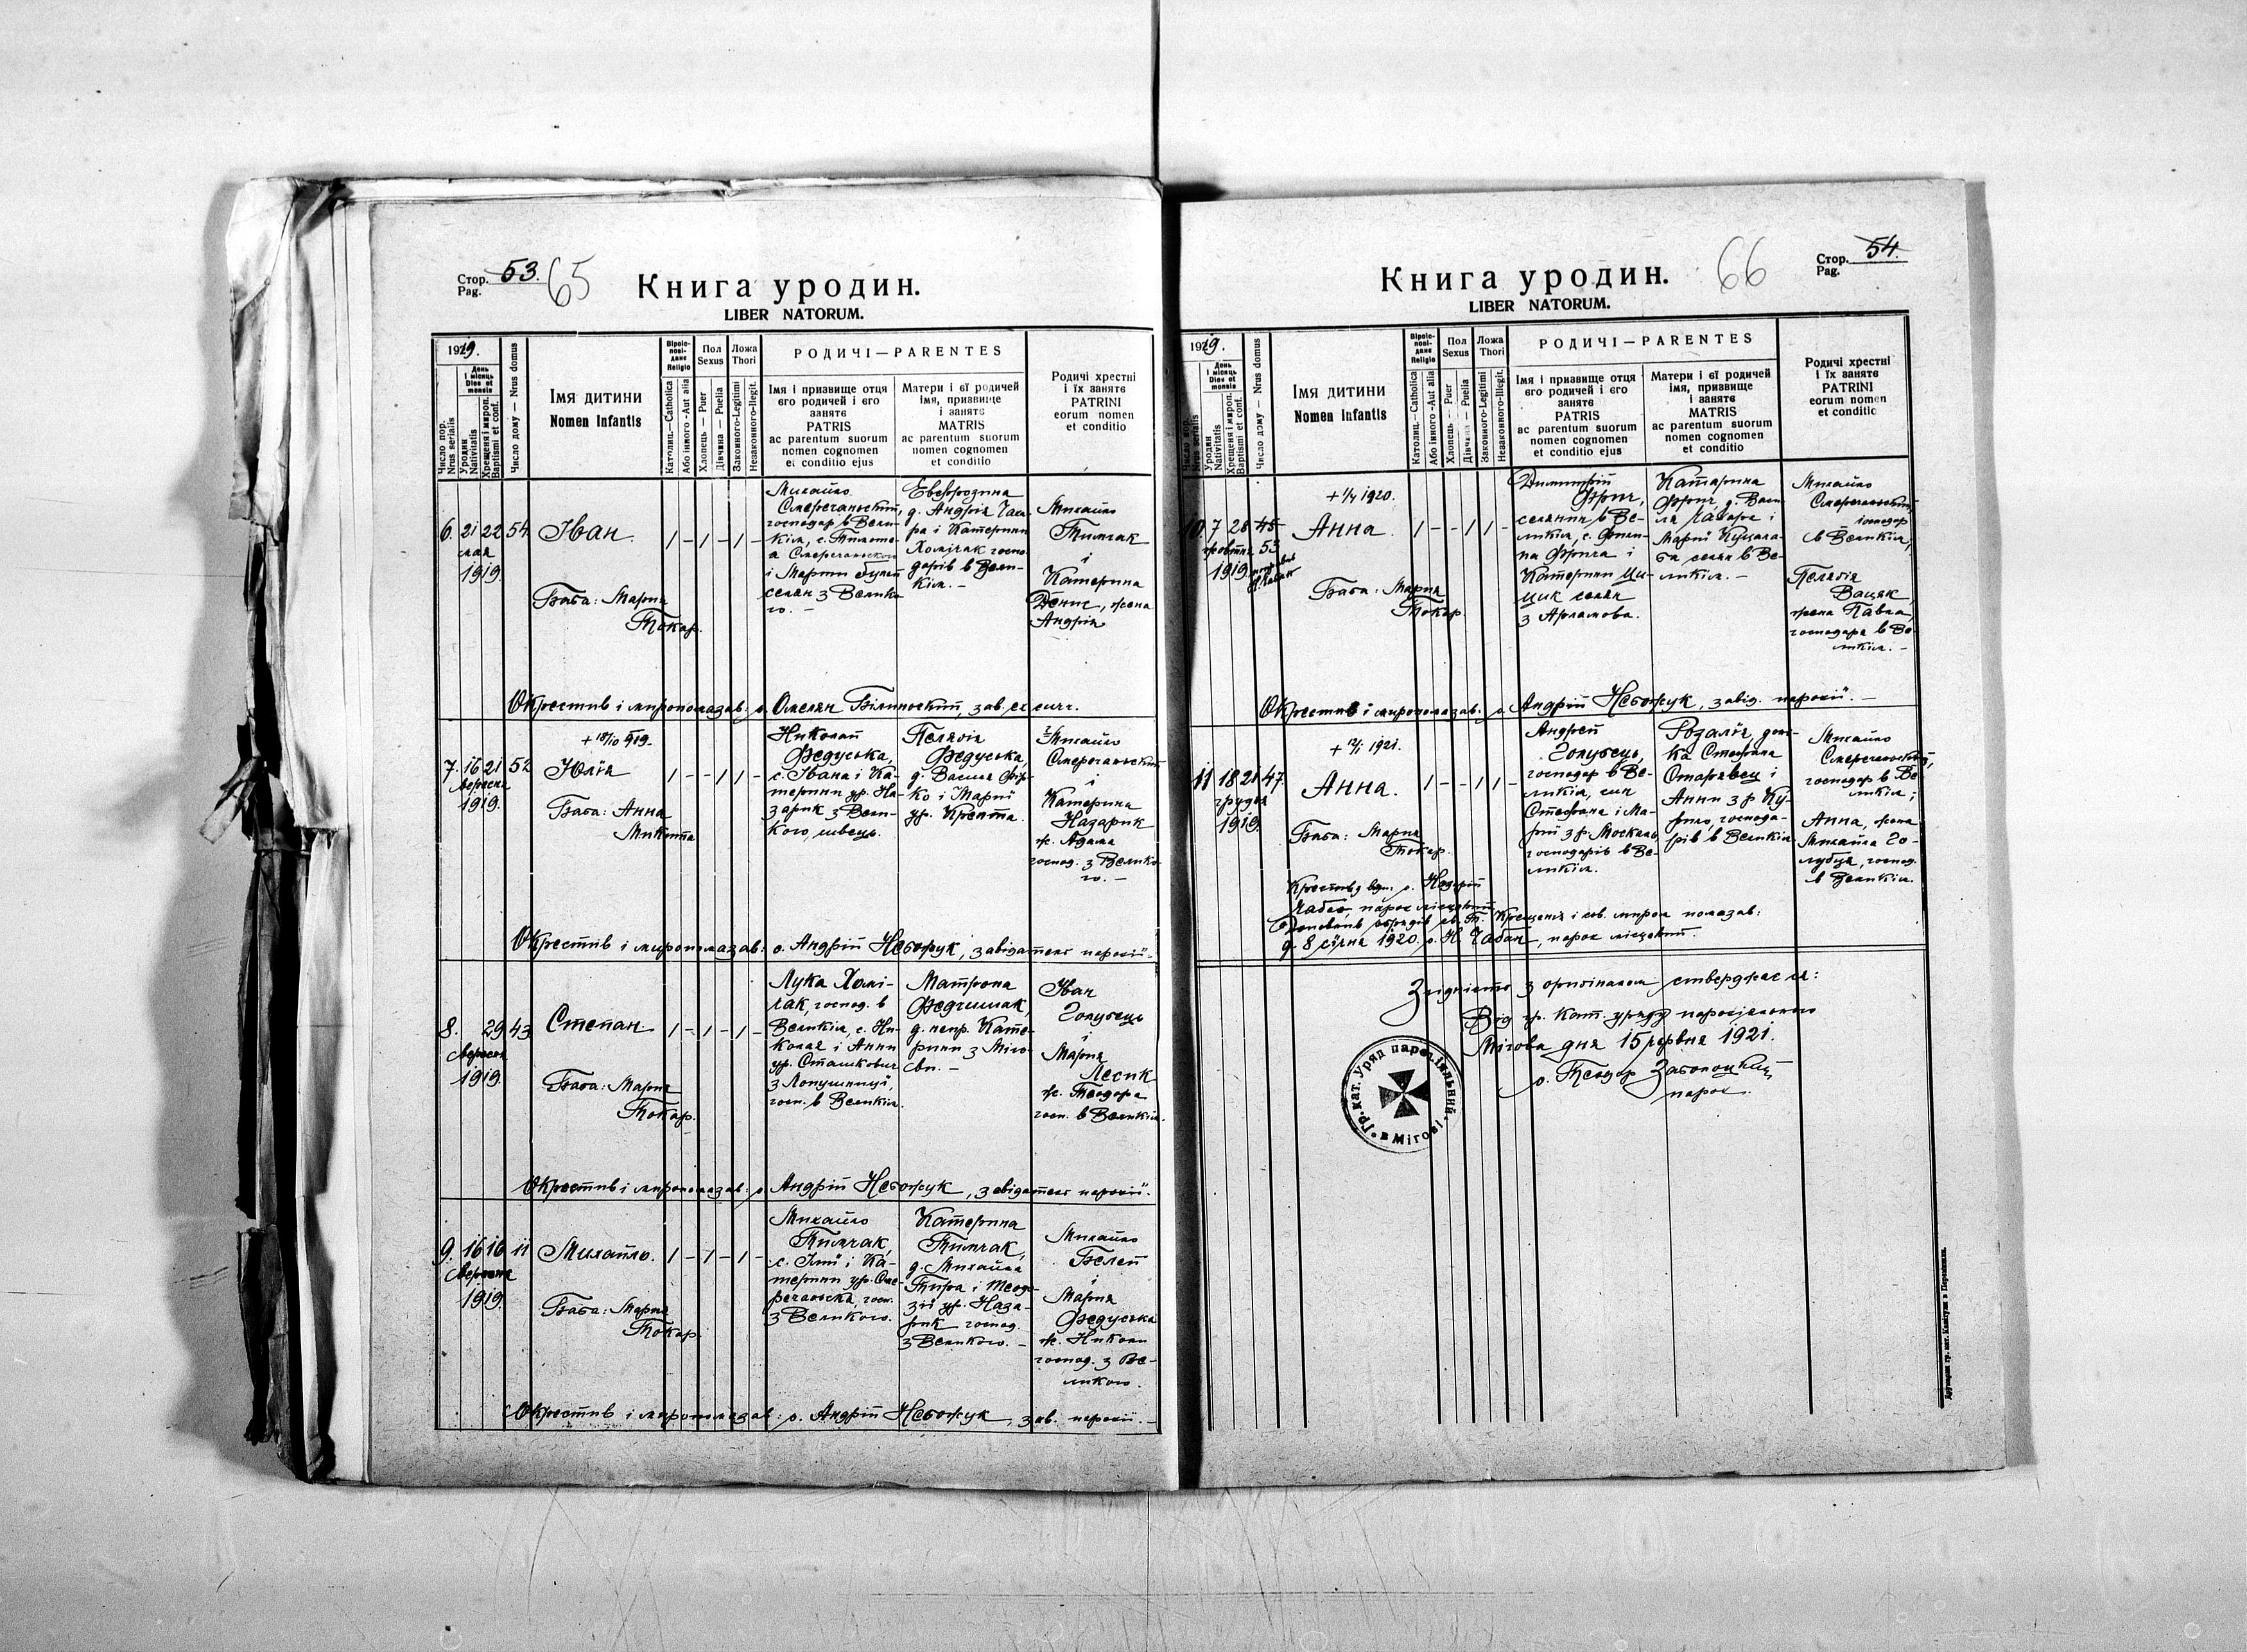 Стор. 53. 65
Pag.
Книга уродин.
LIBER NATORUM.
1919.
Число пор.
Nrus serialis
День
і місяць
Dies et
mensis
Уродин
Nativitatis
Хрещеня і миров.
Baptismi et conf.
Число дому — Nrus domus
Імя дитини
Nomen Infantis
Віроіс-
пові-
данє
Religio
Католиц.—Catholica
Або інного - Aut alia
Пол
Sexus
Хлопець — Puer
Дівчина — Puella
Ложа
Thori
Законного-Legitimi
Незаконного-Illegit.
РОДИЧІ — PARENTES
Імя і призвище отця
єго родичей і єго
занятє
PATRIS
ac parentum suorum
nomen cognomen
et conditio ejus
Матери і єї родичей
імя, призвище
і занятє
MATRIS
ac parentum suorum
nomen cognomen
et conditio
Родичі хрестні
і їх занятє
PATRINI
eorum nomen
et conditio
6. 21 22 54
мая
1919.
Іван.
Баба: Мария
Токар.
Михайло
Смеречанський,
господар в Вели-
кім, с. Тимоте-
я Смеречанського
і Марии
селян з Велико-
го. —
Евфрозина
д. Андрія
ра і Катерини
Хомічак госпо-
дарів в Вели-
кім. —
Михайло
Тимчак
і
Катерина
Денис, жена
Андрія
Окрестив і миропомазав: о. Омелян Білинський, зав.
7. 16 21 52
вересня
1919.
+ 18/10 919.
Юлія
Баба: Анна
Микита
Николай
Федуська,
с. Івана і Ка-
терини ур. На-
зарик з Вели-
кого, швець.
Пелягія
Федуська,
д. Василя Фір-
ко і Марії
ур. Крепта.
Михайло
Смеречанський
і
Катерина
Назарик
ж. Адама
господ. з Велико-
го. —
Окрестив і миропомазав: о. Андрій Небожук, завідатель парохії.
8. 29 43
вересня
1919.
Степан
Баба: Мария
Токар.
Лука Хомі-
чак, господ. в
Великім, с. Ни-
колая і Анни
ур. Сташкович
з Лопушниці,
госп. в Великім.
Матрона
Федчишак,
д. непр. Кате-
рини з Міго-
ви. —
Іван
Голубець
і
Мария
Лесик
ж. Теодора
госп. в Великім.
Окрестив і миропомазав: о. Андрій Небожук, завідатель парохії.
9. 16 16 11
вересня
1919.
Михайло.
Баба: Мария
Токар.
Михайло
Тимчак,
с. Ілії і Ка-
терини ур. Сме-
речанська, госп.
з Великого.
Катерина
Тимчак,
д. Михайла
Тира і Теодо-
зії ур. Наза-
рик господ.
з Великого. —
Михайло
Белей
і
Мария
Федуська
ж. Николи
господ. з Ве-
ликого.
Окрестив і миропомазав: о. Андрій Небожук, зав. парохії. —
Книга уродин. 66
LIBER NATORUM.
Стор. 54.
Pag.
1919.
Число пор.
Nrus serialis
День
і місяць
Dies et
mensis
Уродин
Nativitatis
Хрещеня і миров.
Baptismi et conf.
Число дому — Nrus domus
Імя дитини
Nomen Infantis
Віроіс-
пові-
данє
Religio
Католиц.—Catholica
Або інного - Aut alia
Пол
Sexus
Хлопець — Puer
Дівчина — Puella
Ложа
Thori
Законного-Legitimi
Незаконного-Illegit.
РОДИЧІ — PARENTES
Імя і призвище отця
єго родичей і єго
занятє
PATRIS
ac parentum suorum
nomen cognomen
et conditio ejus
Матери і єї родичей
імя, призвище
і занятє
MATRIS
ac parentum suorum
nomen cognomen
et conditio
Родичі хрестні
і їх занятє
PATRINI
eorum nomen
et conditio
10. 7 28 45
жовтня 53
1919.
Анна.
Баба: Мария
Токар.
Димитрій
Фрич,
селянин в Ве-
ликім, с. Фили-
па Фрича і
Катерини Ци-
цик селян
з Арламова.
Катарина
Фрич, д. Васи-
ля і
Марії
селян в Ве-
ликім. —
Михайло
Смереганський
господар
в Великім,
Пелягія
Вацик,
жена Павла,
господаря в Ве-
ликім. —
Окрестив і миропомазав: о. Андрій Небожук, завід. парохії. —
11 18 21 47.
грудня
1919.
1921.
Анна.
Баба: Мария
Токар.
Андрей
Голубець,
господар в Ве-
ликім, син
Стефана і Ма-
рії з р. Москаль,
господарів в Ве-
ликім.
Розалія, доч-
ка Стефана
Старявец і
Анни з р.
господа-
рів в Великім
Михайло
Смереганський,
господар в Ве-
ликім;
Анна, жена
Михайла Го-
лубця, господ.
в Великім.
парох місцевий,
обрядів св. Т. Крещеня і св. миром помазав:
д. 8 січня 1920. о. Н. Чабан, парох місцевий.
Згідність з оригіналом стверджаєся:
Від гр. кат. уряду парохіяльного
Мігова дня 15 червня 1921.
о. Теодор Заболоцкий
парох.
Гр. кат. Уряд парохіяльний в Мігові